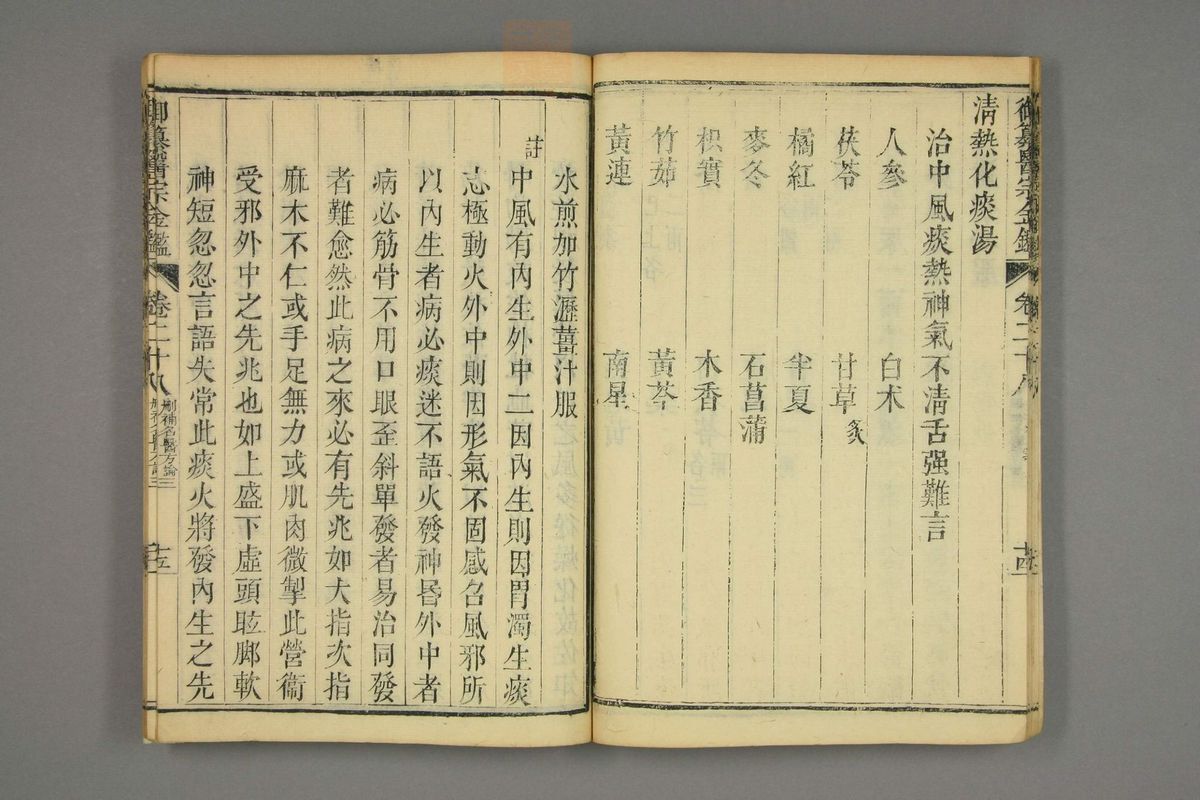 御纂醫宗金鑑 卷二十八 十四
清熱化痰湯
治中風痰熱神氣不清舌强難言
人參 白朮
茯苓 甘草炙
橘紅 半夏
麥冬 石菖蒲
枳實 木香
竹茹 黃芩
黃連 南星
水煎加竹瀝薑汁服
註
中風有內生外中二因內生則因胃濁生痰
志極動火外中則因形氣不固感召風邪所
以內生者病必痰迷不語火發神昏外中者
病必筋骨不用口眼歪斜單發者易治同發
者難愈然此病之來必有先兆如大指次指
麻木不仁或手足無力或肌肉微掣此營衞
受邪外中之先兆也如上盛下虛頭眩脚軟
神短忽忽言語失常此痰火將發內生之先
御纂醫宗金鑑 卷二十八 刪補名醫方論三 十五